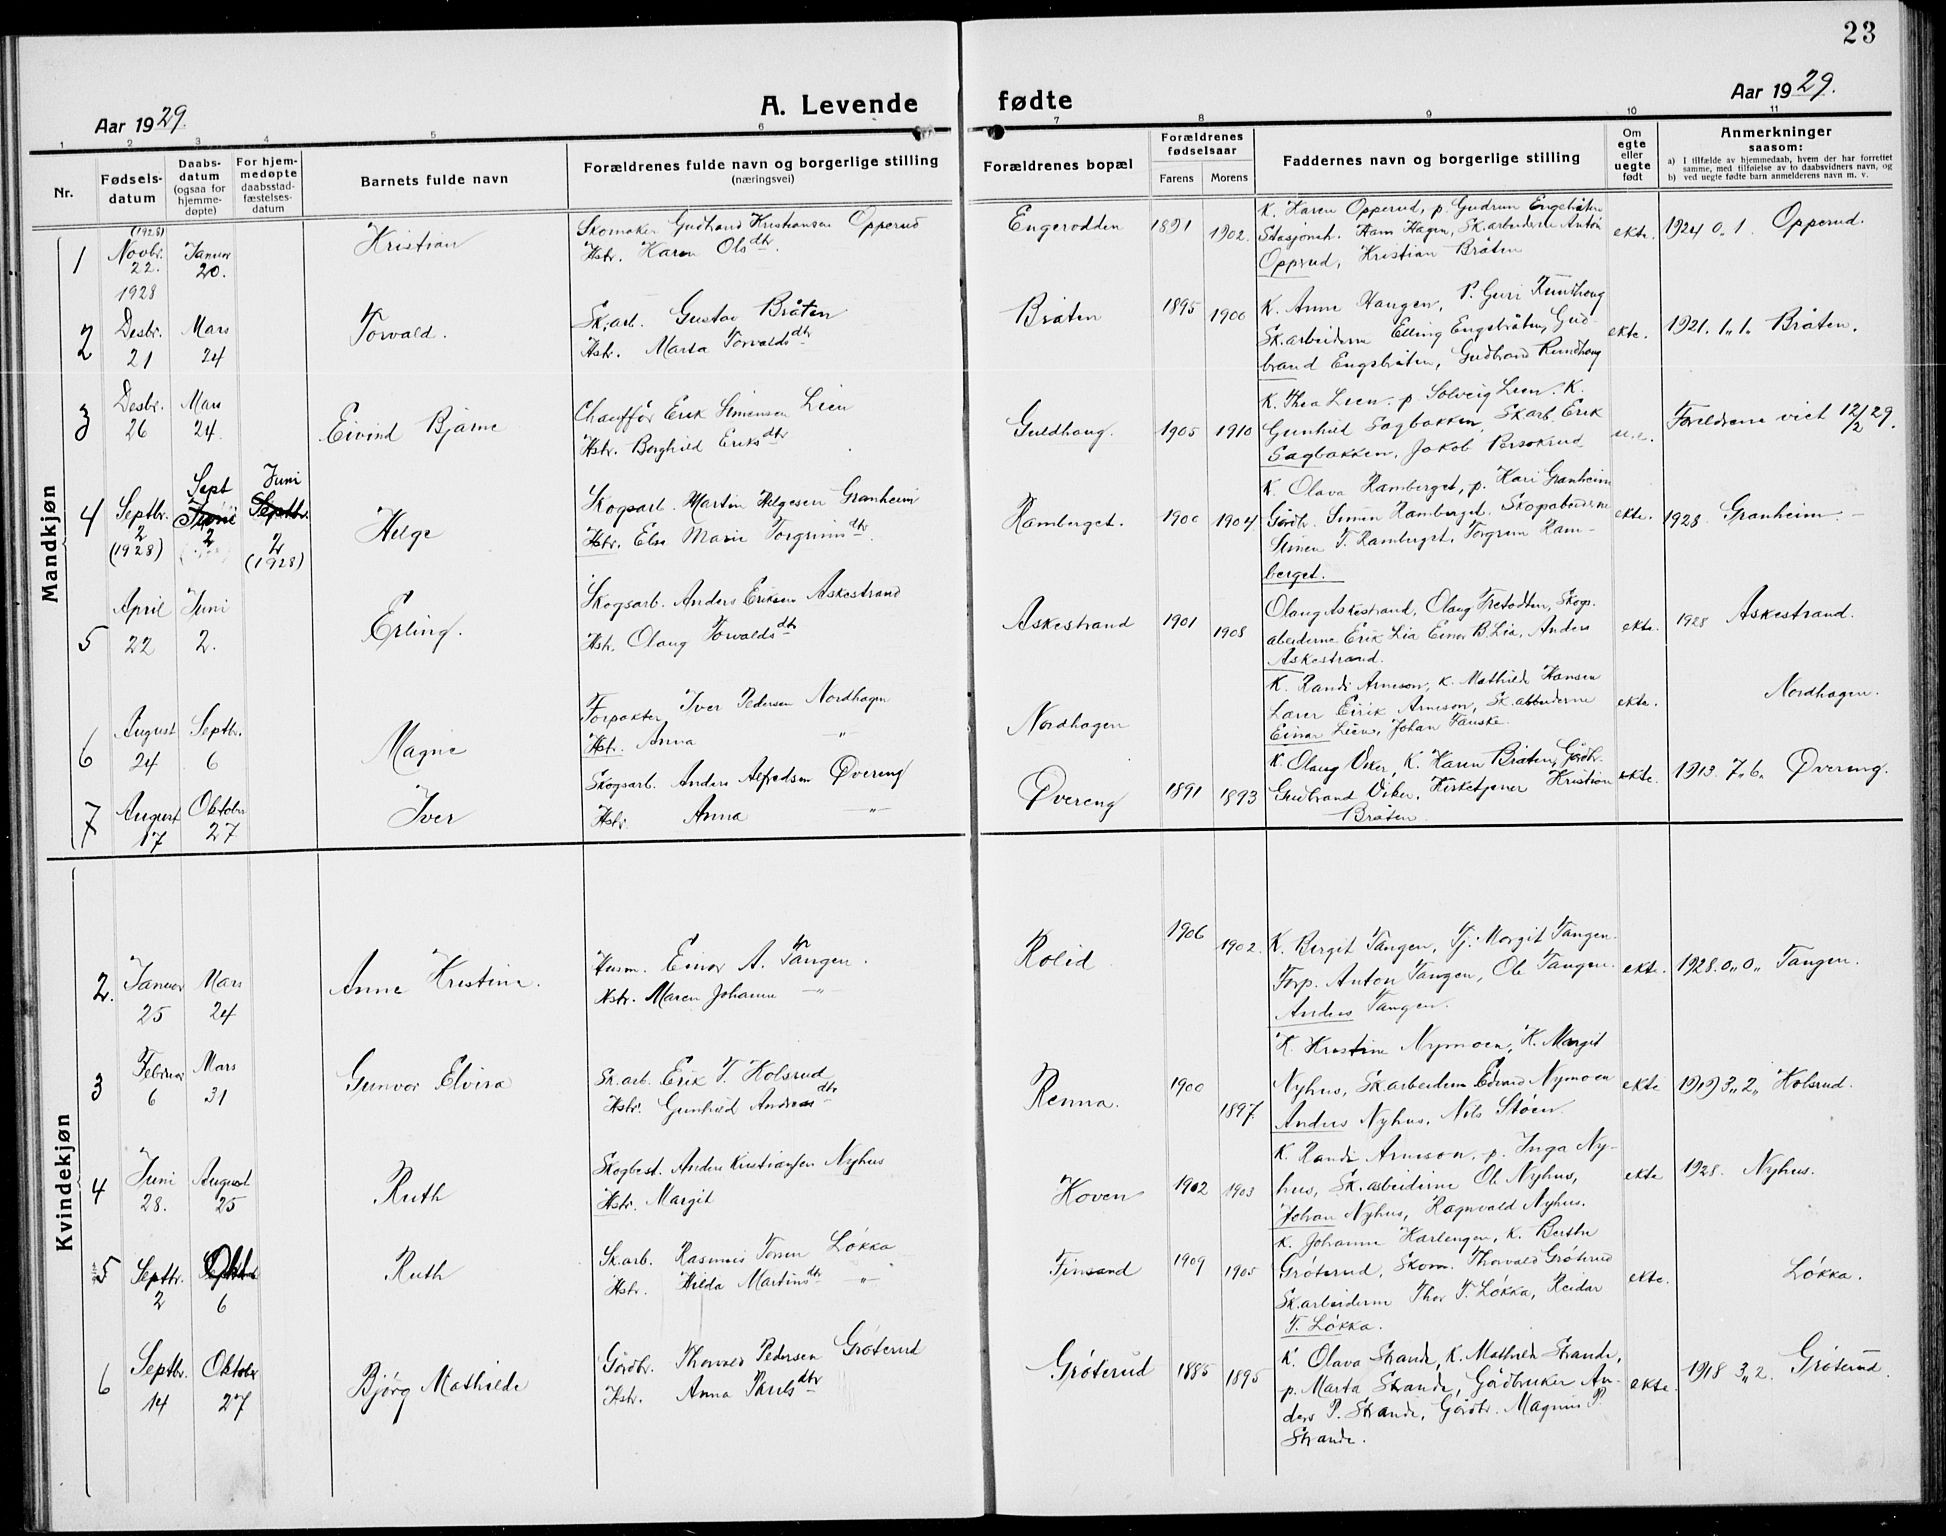 23
Aar 1929.
A. Levende fødte
Aar 1929.
1 2 3 4 5 6 7 8 9 10 11
Nr.
Fødsels-
datum
Daabs-
datum
(ogsaa for
hjemme-
døpte)
For hjem-
medøpte
daabsstad-
fæstelses-
datum
Barnets fulde navn
Forældrenes fulde navn og borgerlige stilling
(næringsvei)
Forældrenes bopæl
Forældrenes
fødselsaar
Farens Morens
Faddernes navn og borgerlige stilling
Om
egte
eller
uegte
født
Anmerkninger
saasom:
a) I tilfælde av hjemmedaab, hvem der har forrettet
samme, med tilføielse av to daabsvidners navn, og
b) ved uegte fødte barn anmelderens navn m. v.
Mandkjøn
1
(1928)
Novbr.
22.
Januar
20.
Kristian
Skomaker Gudbrand Kristiansen Opperud
Hstr. Karen Olsdtr.
Engerodden
1891 1902.
K. Karen Opperud, p. Gudrun Engebråten
Stasjonsh. Ham Hagen, Sk.arbeiderne Anton
Opprud, Kristian Bråten
ekte.
1924 0„ 1. Opperud.
2
1928
Desbr.
21
Mars
24
Torvald.
Sk.arb. Gustav Bråten
Hstr. Marta Torvaldsdtr
Bråten
1895 1900
K. Anne Haugen, P. Guri Rundhaug
Sk.arbeiderne Elling Engebråten, Gud-
brand Engebråten, Gudbrand Rundhaug
ekte.
1921. 1„ 1. Bråten.
3
Desbr.
26
Mars
24.
Eivind Bjarne
Chauffør Erik Simensen Lien
Hstr. Borghild Eriksdtr
Guldhaug.
1905 1910
K. Thea Lien. p. Solveig Lien. K.
Gunhild Sagbakken, Sk.arb. Erik
Sagbakken, Jakob Persokrud
u.e.
Foreldrene viet 12/2 29.
4
Septbr.
2
(1928)
Sept
Juni
2
Juni
Septbr.
2
(1928)
Helge
Skogsarb. Martin Helgesen Granheim
Hstr. Else Marie Torgrimsdtr.
Ramberget.
1900 1904
K. Olava Ramberget, p. Kari Granheim
Gårdbr. Simen Ramberget. Skogsabeiderne
Simen T. Ramberget, Torgrim Ram-
berget.
ekte.
1928 Granheim. —
5
April
22
Juni
2.
Erling.
Skogsarb. Anders Eriksen Askestrand
Hstr. Olaug Torvaldsdtr
Askestrand
1901 1908
Olaug Askestrand, Olaug Tretodten, Skogs.
abeiderne Erik Lia Einar B. Lia, Anders
Askestrand.
ekte.
1928 Askestrand.
6
August
24
Septbr.
6
Magne
Forpakter Iver Pedersen Nordhagen
Hstr. Anna „
Nordhagen
K. Randi Arneson, K. Mathilde Hansen
Lærer Eirik Arneson, Sk.abbeiderne
Einar Lien, Johan Fauske.
ekte.
Nordhagen.
7
August
17
Oktober
27
Iver
Skogsarb. Anders Alfredsen Øvereng
Hstr. Anna „
Øvereng
1891 1893
K Olaug Viker, K. Karen Bråten, Gårdbr.
Gudbrand Viker, Kirketjener Kristian
Bråten
ekte.
1913. 7„ 6„ Øvereng.
Kvindekjøn
2.
Januar
25
Mars
24
Anne Kristine.
Husm. Einar A. Tangen.
Hstr. Maren Johanne „
Rolid
1906 1902.
K. Bergit Tangen, Tj. Margit Tangen.
Forp. Anton Tangen, Ole Tangen.
Anders Tangen.
ekte.
1928. 0„ 0„ Tangen.
3
Februar
6
Mars
31
Gunvor Elvira
Sk.arb. Erik T. Kolsrud
Hstr. Gunhild Andreasdtr
Renna.
1900 1897.
K. Kristine Nymoen, K. Margit
Nyhus, Sk.arbeiderne Edvard Nymoen
Anders Nyhus, Nils Støen.
ekte
1919 3„ 2„ Kolsrud.
4
Juni
28.
August
25
Ruth
Skogbest. Anders Kristiansen Nyhus
Hstr. Margit
Koven
1902 1903
K. Randi Arneson, p. Inga Ny-
hus, Sk.arbeiderne Ole Nyhus,
Johan Nyhus, Ragnvald Nyhus.
ekte
1928. Nyhus.
5
Septbr.
2
Okt
6
Ruth
Sk.arb. Rasmus Torsen Løkka
Hstr. Hilda Martinsdtr „
Finsand
1909 1905
K. Johanne Harlengen, K. Berthe
Grøterud, Skom. Thorvald Grøterud
Sk.arbeiderne Thor T. Løkka, Reidar
T. Løkka.
ekte.
Løkka.
6
Septbr.
14
Oktober
27
Bjørg Mathilde
Gårdbr. Thorvald Pedersen Grøterud
Hstr. Anna Paulsdtr
Grøterud
1885 1895
K. Olava Strande, K. Mathilde Strande,
p. Marta Strande, Gårdbruker An-
ders P. Strande, Gårdbr. Magnus P.
Strande.
ekte.
1918 3„ 2. Grøterud.